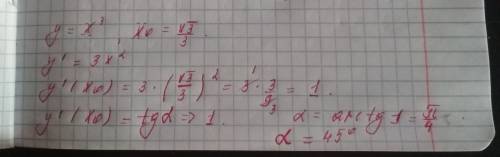 y = x³, x₀ = √3/3.
y' = 3x²
y'(x₀) = 3 · (√3/3)² = 3 · 3/9 = 1.
y'(x₀) = tgα => 1. α = arctg 1 = π/4
α = 45°